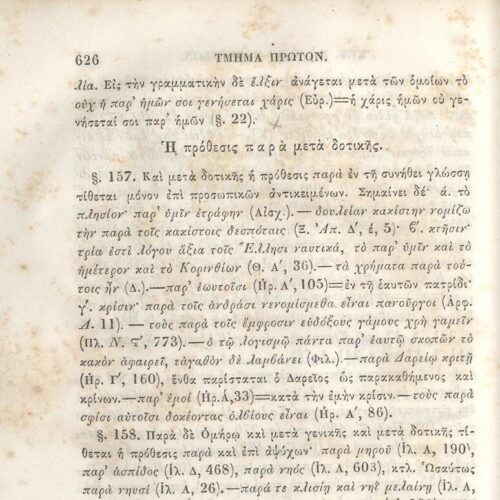 626 ΤΜΗΜΑ ΠΡΩΤΟΝ.
λία. Εἰς τὴν γραμματικὴν δὲ ἕλξιν ἀνάγεται μετὰ τῶν ὁμοίων τὸ
οὐχ ἡ παρ' ἡμῶν σοι γενήσεται χάρις (Εὐρ.)=ἡ χάρις ἡμῶν οὐ γε-
νήσεταί σοι παρ' ἡμῶν (§. 22).
Ἡ πρόθεσις παρὰ μετὰ δοτικῆς.
§. 157. Καὶ μετὰ δοτικῆς ἡ πρόθεσις παρὰ ἐν τῇ συνήθει γλώσσῃ
τίθεται μόνον ἐπὶ προσωπικῶν ἀντικειμένων. Σημαίνει δέ· ά. τὸ
πλησίον· παρ' ὑμῖν ἐτράφην (Αἰσχ.).—δουλείαν κακίστην νομίζω
τὴν παρὰ τοῖς κακίστοις δεσπόταις (Ξ. Ἀπ. Δ', έ, 5)· ϐ'. κτῆσιν·
τρία ἐστὶ λόγου ἄξια τοῖς Ἕλλησι ναυτικά, τὸ παρ' ὑμῖν καὶ τὸ
ἡμέτερον καὶ τὸ Κορινθίων (Θ. Α', 36).—τὰ χρήματα παρὰ τού-
τοις ἦν (Δ.).—παρ' ἑωυτοῖσι (Ἡρ. Α', 105)=ἐν τῇ ἑαυτῶν πατρίδι·
γ'. κρίσιν· παρὰ τοῖς ἀνδράσι νενομίσμεθα εἶναι πανοῦργοι (Ἀρφ.
Λ. 11).—τοὺς παρὰ τοῖς ἔμφροσιν εὐδόξους γάμους χρὴ γαμεῖν
(Πλ. Ν. Ϛ', 773).—ὁ τῷ λογισμῷ πάντα παρ' ἑαυτῷ σκοπῶν τὸ
κακὸν ἀφαιρεῖ, τἀγαθὸν δὲ λαμβάνει (Φιλ.).—παρὰ Δαρείῳ κριτῇ
(Ἡρ. Γ', 160), ἔνθα παρίσταται ὁ Δαρεῖος ὡς παρακαθήμενος καὶ
κρίνων.—παρ' ἐμοί (Ἡρ.Ά,33)=κατὰ τὴν ἐμὴν κρίσιν.—τοὺς παρὰ
σφίσι αὐτοῖσι δοκέοντας ὀλβίους εἶναι (Ἡρ. Α', 86).
§. 158. Παρὰ δὲ Ὁμήρῳ καὶ μετὰ γενικῆς καὶ μετὰ δοτικῆς τί-
θεται ἡ πρόθεσις παρὰ καὶ ἐπὶ ἀψύχων· παρὰ μηροῦ (Ἰλ. Α, 190),
παρ' ἀσπίδος (Ἰλ. Δ, 468), παρὰ νηός (Ἰλ. Λ, 603), κτλ. Ὡσαύτως
παρὰ νηυσί (Ἰλ. Α, 26).—παρά τε κλισίῃ καὶ νηῒ μελαίνῃ (Ἰλ. Α,